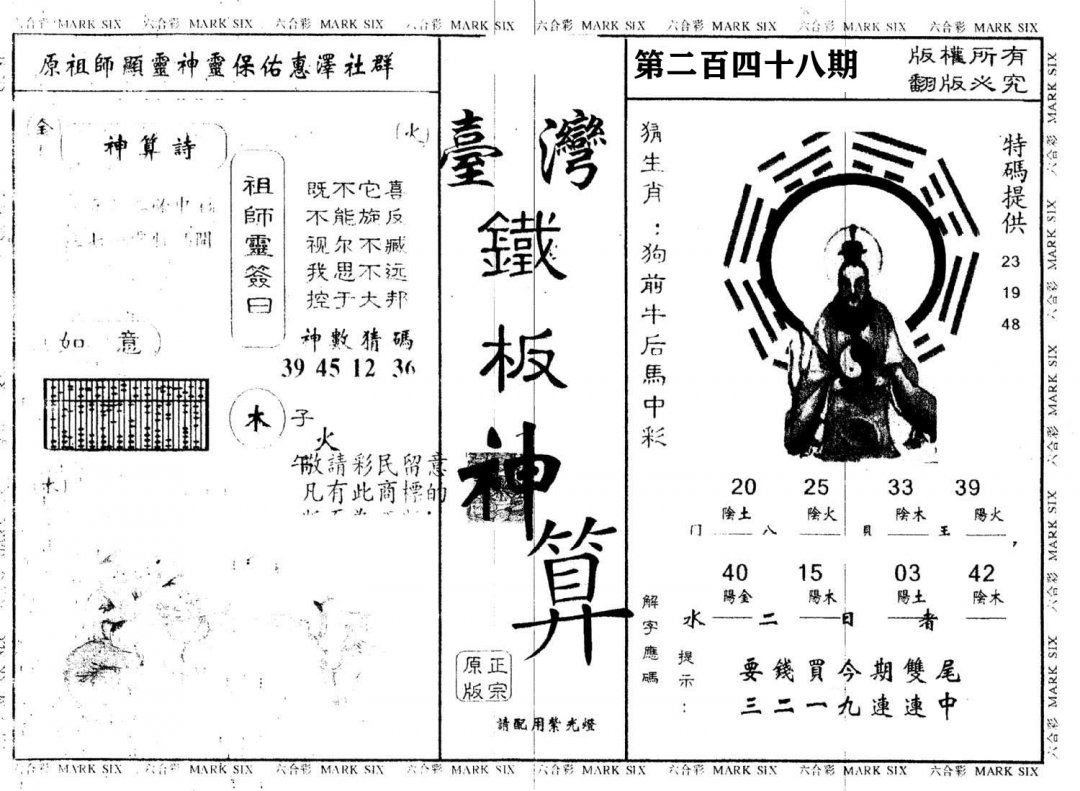 六合彩 MARK SIX 六合彩 MARK SIX 六合彩 MARK SIX 六合彩 MARK SIX 六合彩 MARK SIX 六合彩 MARK SIX 六合彩 MARK SIX 六合彩 MARK SIX
原祖師顯靈神靈保佑惠澤社群
金
神算詩
火
祖師靈簽曰
既不它喜
不能旋反
视尔不臧
我思不远
控于大邦
神數猜碼
39 45 12 36
如意
木
子
火
午敬請彩民留意
凡有此商標的
水
臺灣
鐵板神算
正宗
原版
請配用紫光燈
第二百四十八期
版權所有
翻版必究
猜生肖：狗前牛后馬中彩
特碼提供
23
19
48
20 25 33 39
陰土 陰火 陰木 陽火
门 八 貝 王 ,
40 15 03 42
陽金 陽木 陽土 陰木
水 二 日 者
解字應碼
提示:
要錢買今期雙尾
三二一九連連中
六合彩 MARK SIX 六合彩 MARK SIX 六合彩 MARK SIX 六合彩 MARK SIX 六合彩 MARK SIX
六合彩 MARK SIX 六合彩 MARK SIX 六合彩 MARK SIX 六合彩 MARK SIX 六合彩 MARK SIX 六合彩 MARK SIX 六合彩 MARK SIX 六合彩 MARK SIX